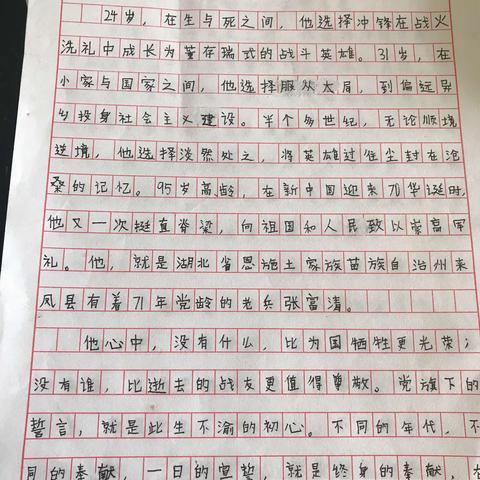 24岁，在生与死之间，他选择冲锋在战火
洗礼中成长为董存瑞式的战斗英雄。31岁，在
小家与国家之间，他选择服从大局，到偏远异
乡投身社会主义建设。半个多世纪，无论顺境
逆境，他选择淡然处之，将英雄过往尘封在沧
桑的记忆。95岁高龄，在新中国迎来70华诞时，
他又一次挺直脊梁，向祖国和人民致以崇高军
礼。他，就是湖北省恩施土家族苗族自治州来
凤县有着71年党龄的老兵张富清。
他心中，没有什么，比为国牺牲更光荣；
没有谁，比逝去的战友更值得尊敬。党旗下的
誓言，就是此生不渝的初心。不同的年代，不
同的奉献，一日的宣誓，就是终身的奉献，在